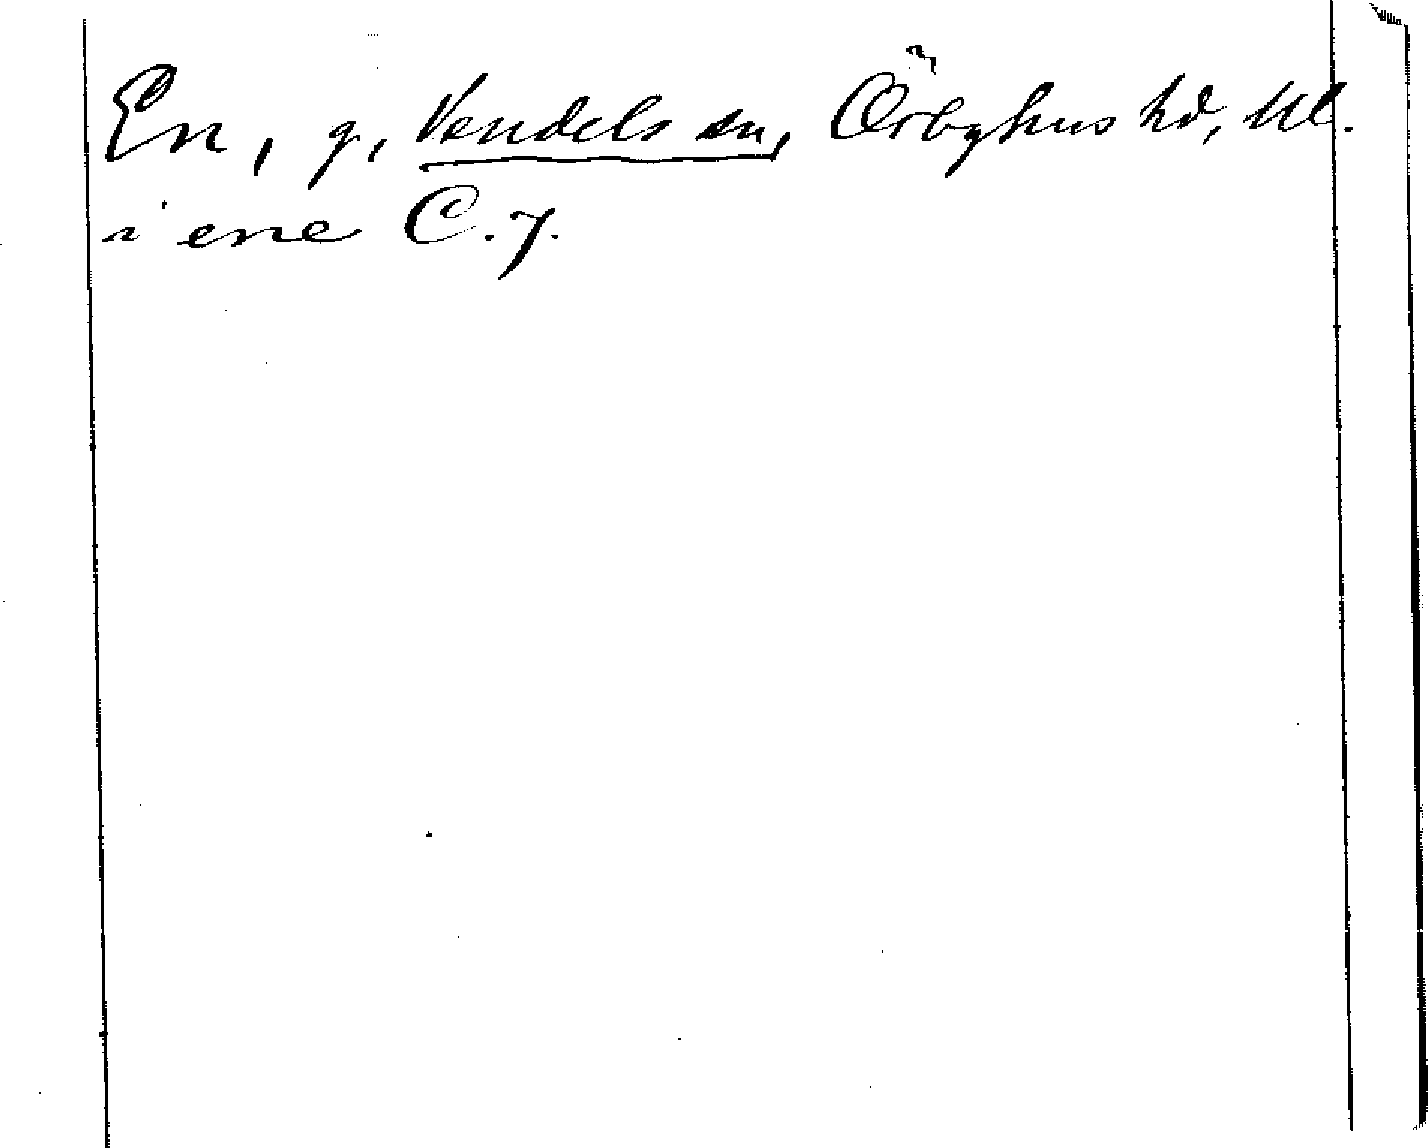 En, g, Vendels sn, Örbyhus hd, Ul.
i ene C.J.